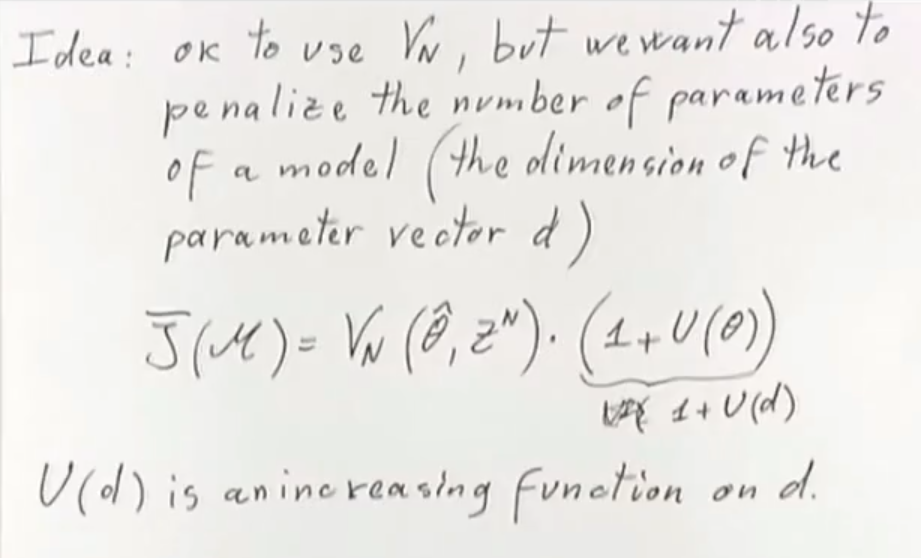 Idea: ok to use V_N, but we want also to
penalize the number of parameters
of a model (the dimension of the
parameter vector d)
J̅(M) = V_N (θ̂, Z^N) · (1 + U(θ))
1 + U(d)
U(d) is an increasing function on d.